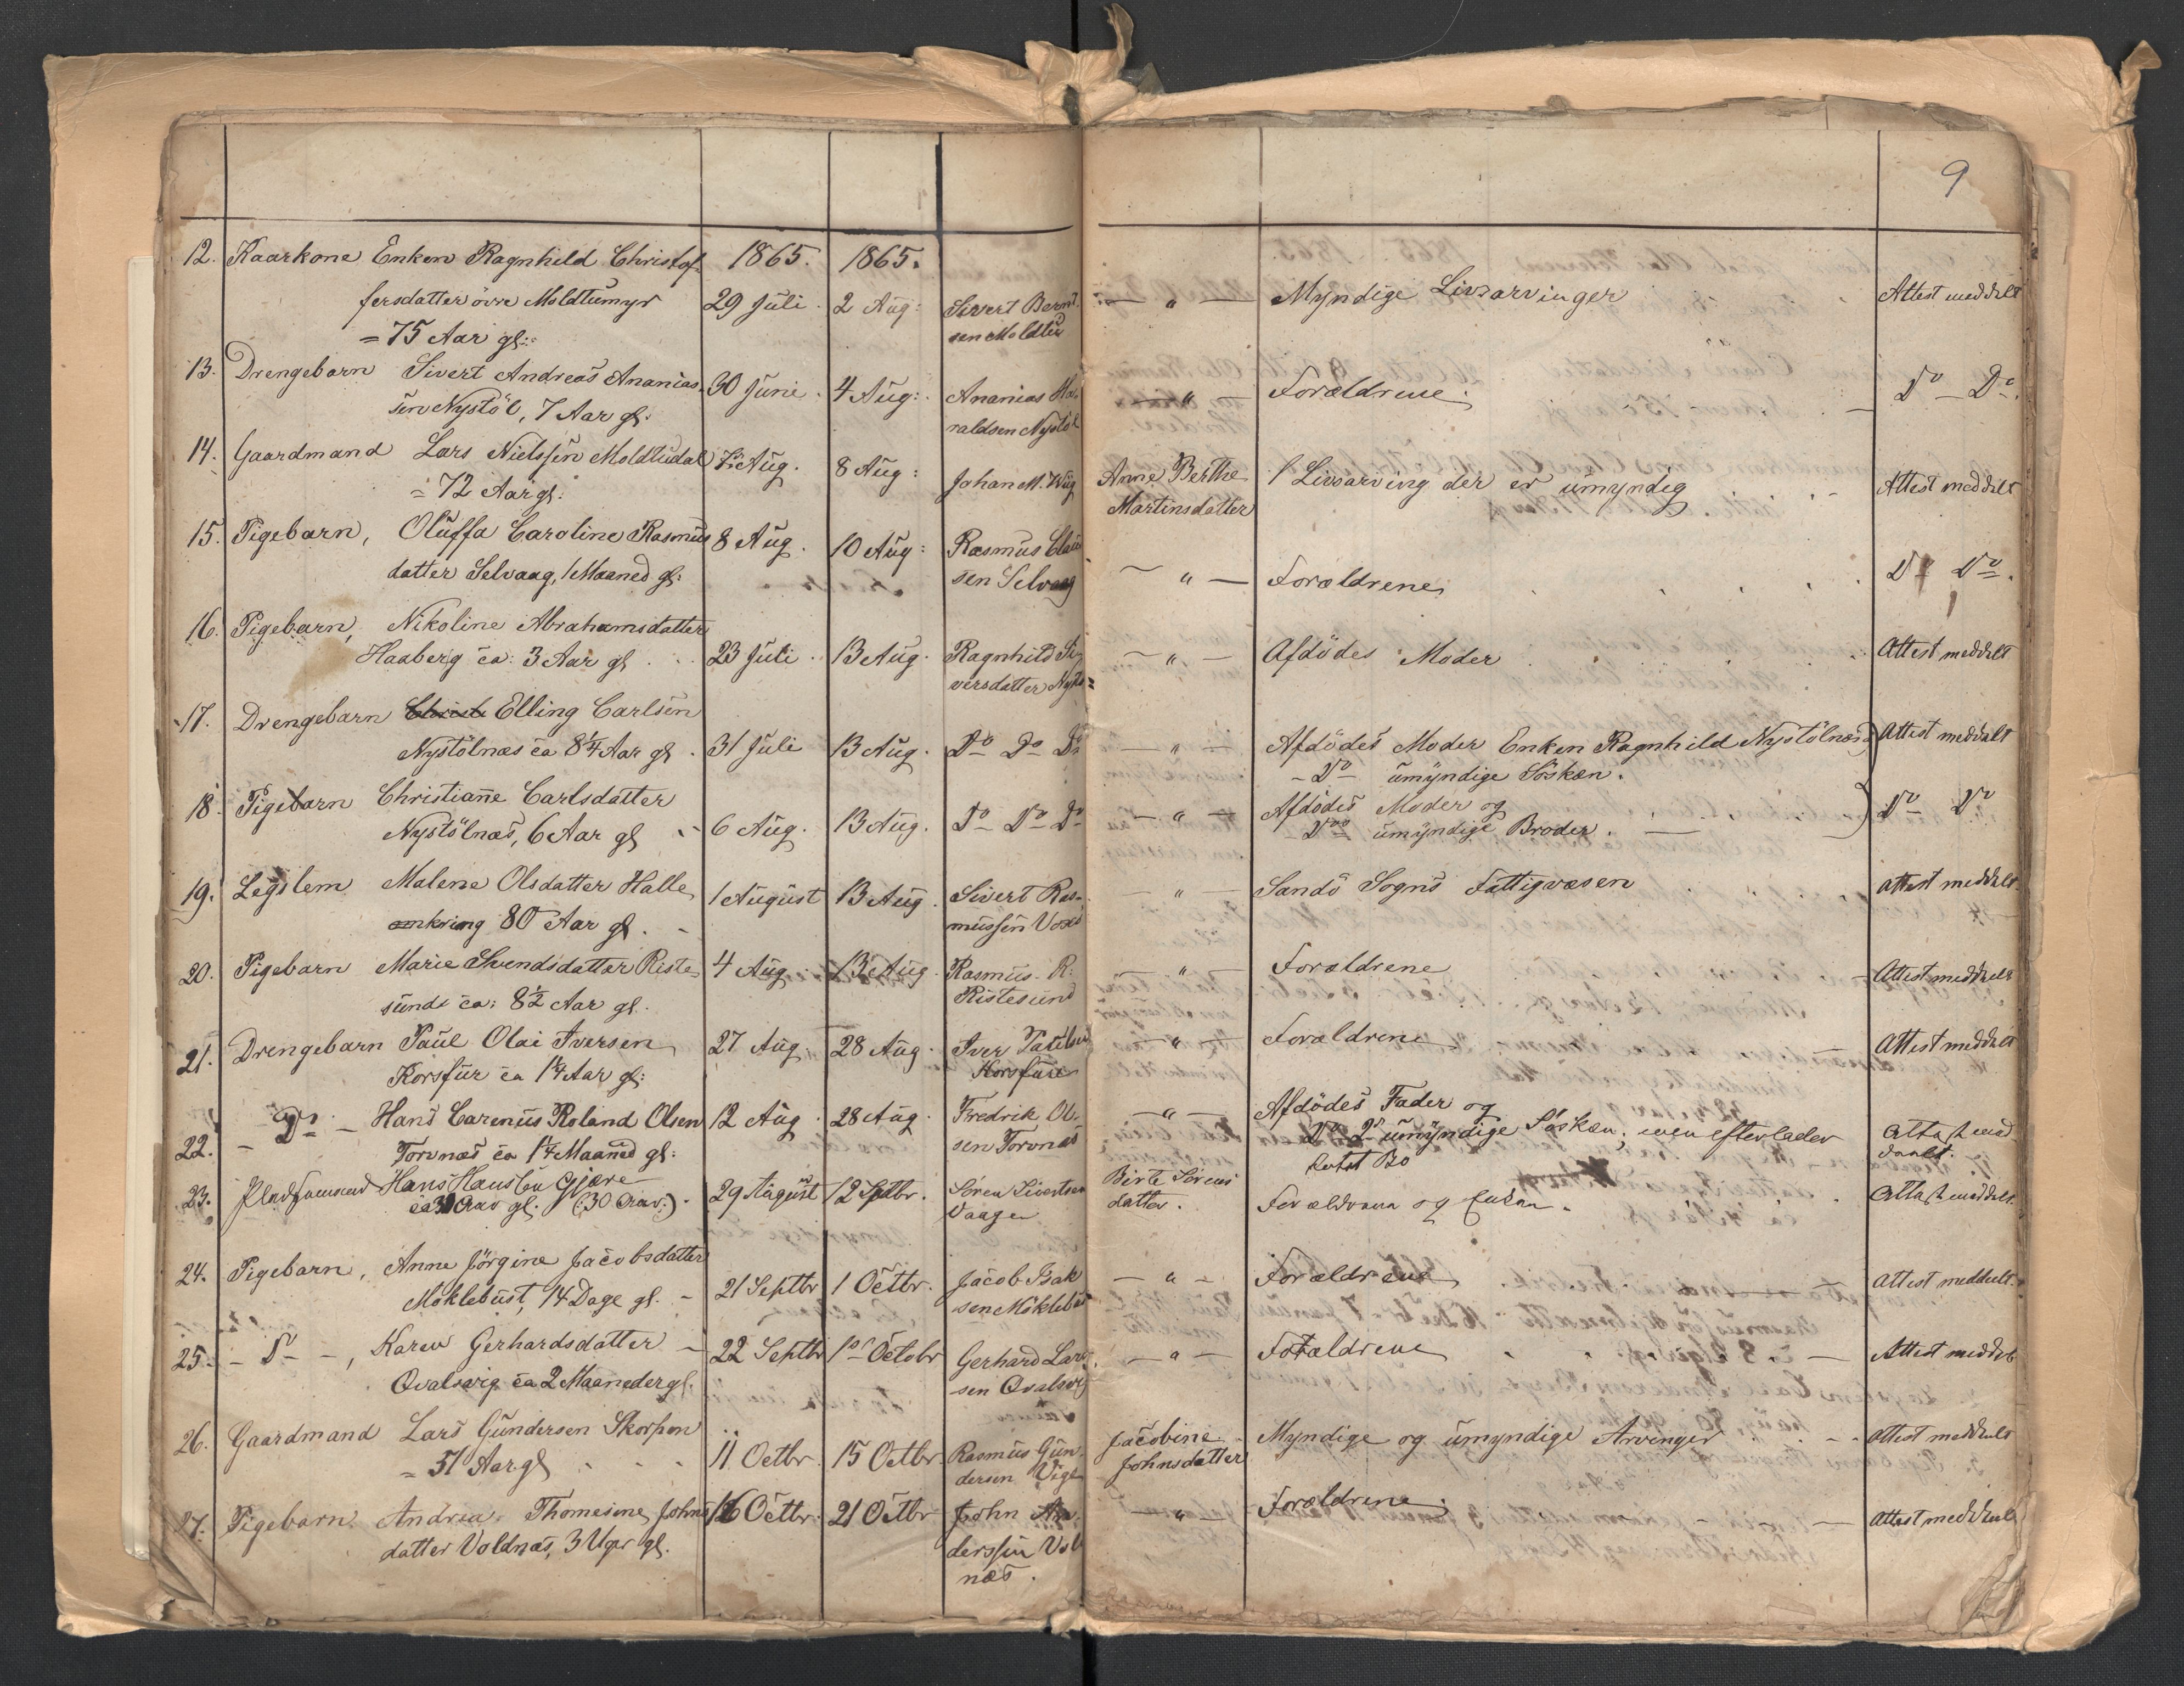 9
12. Kaarkone Enken Ragnhild Christof-
fersdatter övre Moldtumyr
= 75 Aar gl:
1865.
29 Juli.
1865.
2 Aug:
Sivert Bernt
sen Moldtu
— " —
Myndige Livsarvinger
Attest meddelt
13. Drengebarn Sivert Andreas Ananias-
sen Nystöl, 7 Aar gl.
30 Juni.
4 Aug:
Ananias Ha-
raldsen Nystöl
— " —
Forældrene.
Do — Do.
14. Gaardmand Lars Nielssen Moldtudal
= 72 Aar gl.
7 Aug.
8 Aug:
Johan M. Wiig
Anne Berthe
Martinsdatter
1 Livsarving der er umyndig
Attest meddelt
15. Pigebarn, Oluffa Caroline Rasmus
datter Selvaag, 1 Maaned gl:
8 Aug.
10 Aug:
Rasmus
sen Selvaag
— " —
Forældrene
Do Do.
16. Pigebarn, Nikoline Abrahamsdatter
Haaberg ca: 3 Aar gl
23 Juli.
13 Aug.
Ragnhild Si
versdatter
— " —
Afdödes Moder
Attest meddelt
17. Drengebarn Christi Elling Carlsen
Nystölnæs ca 8 1/4 Aar gl.
31 Juli
13 Aug.
Do Do Do
— " —
Afdödes Moder Enken Ragnhild Nystölnæs
— Do umyndige Söskæn.
Attest meddelt
18. Pigebarn Christiane Carlsdatter
Nystölnæs, 6 Aar gl
6 Aug.
13 Aug.
Do Do Do
— " —
Afdödes Moder og
— Do umyndige Broder.
Do Do
19. Legslem Malene Olsdatter Halle
omkring 80 Aar gl.
1 August
13 Aug.
Sivert Ras-
mussen
— " —
Sandö Sogns Fattigvæsen
Attest meddelt
20. Pigebarn Marie Svendsdatter Riste-
sund ca: 8 1/2 Aar gl.
4 Aug
13 Aug.
Rasmus R.
Ristesund
— " —
Forældrene
Attest meddelt
21. Drengebarn Paul Olai Iversen
Korsfur ca 1 1/4 Aar gl:
27 Aug.
28 Aug.
Iver Paulsen
Korsfur
— " —
Forældrene
Attest meddelt
22. — Do — Hans Carenius Roland Olsen
Torvnæs ca 1 1/4 Maaned gl:
12 Aug.
28 Aug.
Fredrik Ol-
sen Torvnæs
— " —
Afdödes Fader og
Do Do umyndige Söskæn, men efterlader
intet Bo
Attest med
deelt.
23. Pladsemand Hans Hanssen Gjære
ca 30 Aar gl. (:30 Aar:).
29 August
12 Septbr.
Sören Sivertsen
Vaagen
Birte Sörens
datter.
Forældrene og Enken.
Attest meddelt.
24. Pigebarn, Anne Jörgine Jacobsdatter
Möklebust, 14 Dage gl.
21 Septbr
1 Octbr.
Jacob Isak
sen Möklebust
— " —
Forældrene
Attest meddeelt.
25. — Do —, Karen Gerhardsdatter
Qvalsvig ca 2 Maaneder gl.
22 Septbr
1st October
Gerhard Lars
sen Qvalsvig
— " —
Forældrene
Attest meddelt
26. Gaardmand Lars Gundersen Skorpen
= 51 Aar gl
11 Octbr.
15 Octbr.
Rasmus Gun-
dersen
Jacobine
Johnsdatter
Myndige og umyndige Arvinger
Attest meddeelt
27. Pigebarn Andrea Thomesine Johns
datter Voldnæs, 3 Uger gl.
16 Octbr.
21 Octbr
John An-
derssen Vold
næs.
— " —
Forældrene.
Attest meddeelt